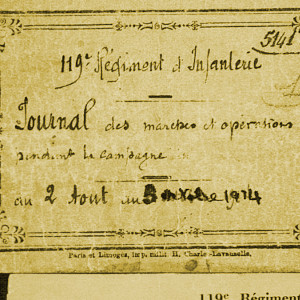 5141
119e Régiment d'Infanterie
Journal des marches et opérations
pendant la campagne
au 2 Aout au 1914
Paris et Limoges, Imp. milit. H. Charles-Lavauzelle.
119e Régiment